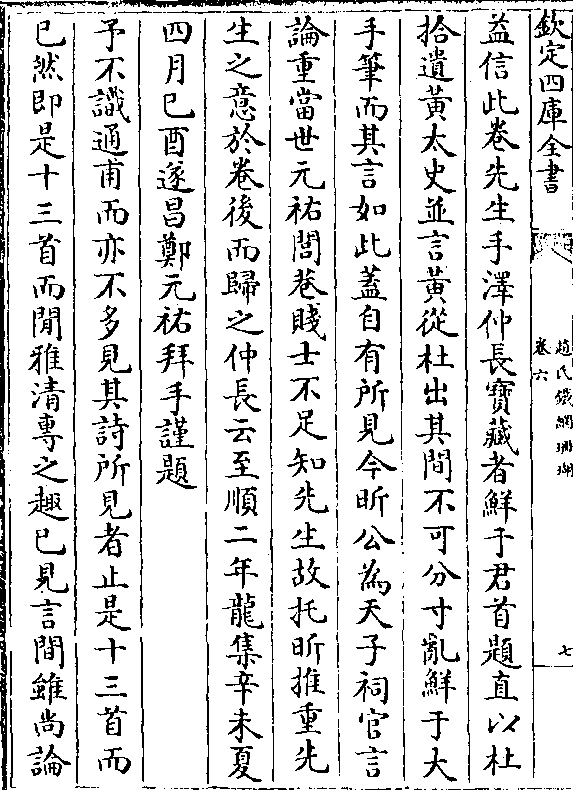 欽定四庫全書
趙氏鐵網珊瑚
卷六
七
益信此卷先生手澤仲長寶藏者鮮于君首題直以杜
拾遺黃太史並言黃從杜出其間不可分寸亂鮮于大
手筆而其言如此蓋自有所見今昕公為天子祠官言
論重當世元祐閭巷賤士不足知先生故托昕推重先
生之意於卷後而歸之仲長云至順二年龍集辛未夏
四月己酉遂昌鄭元祐拜手謹題
予不識通甫而亦不多見其詩所見者止是十三首而
已然即是十三首而閒雅清專之趣已見言間雖尚論